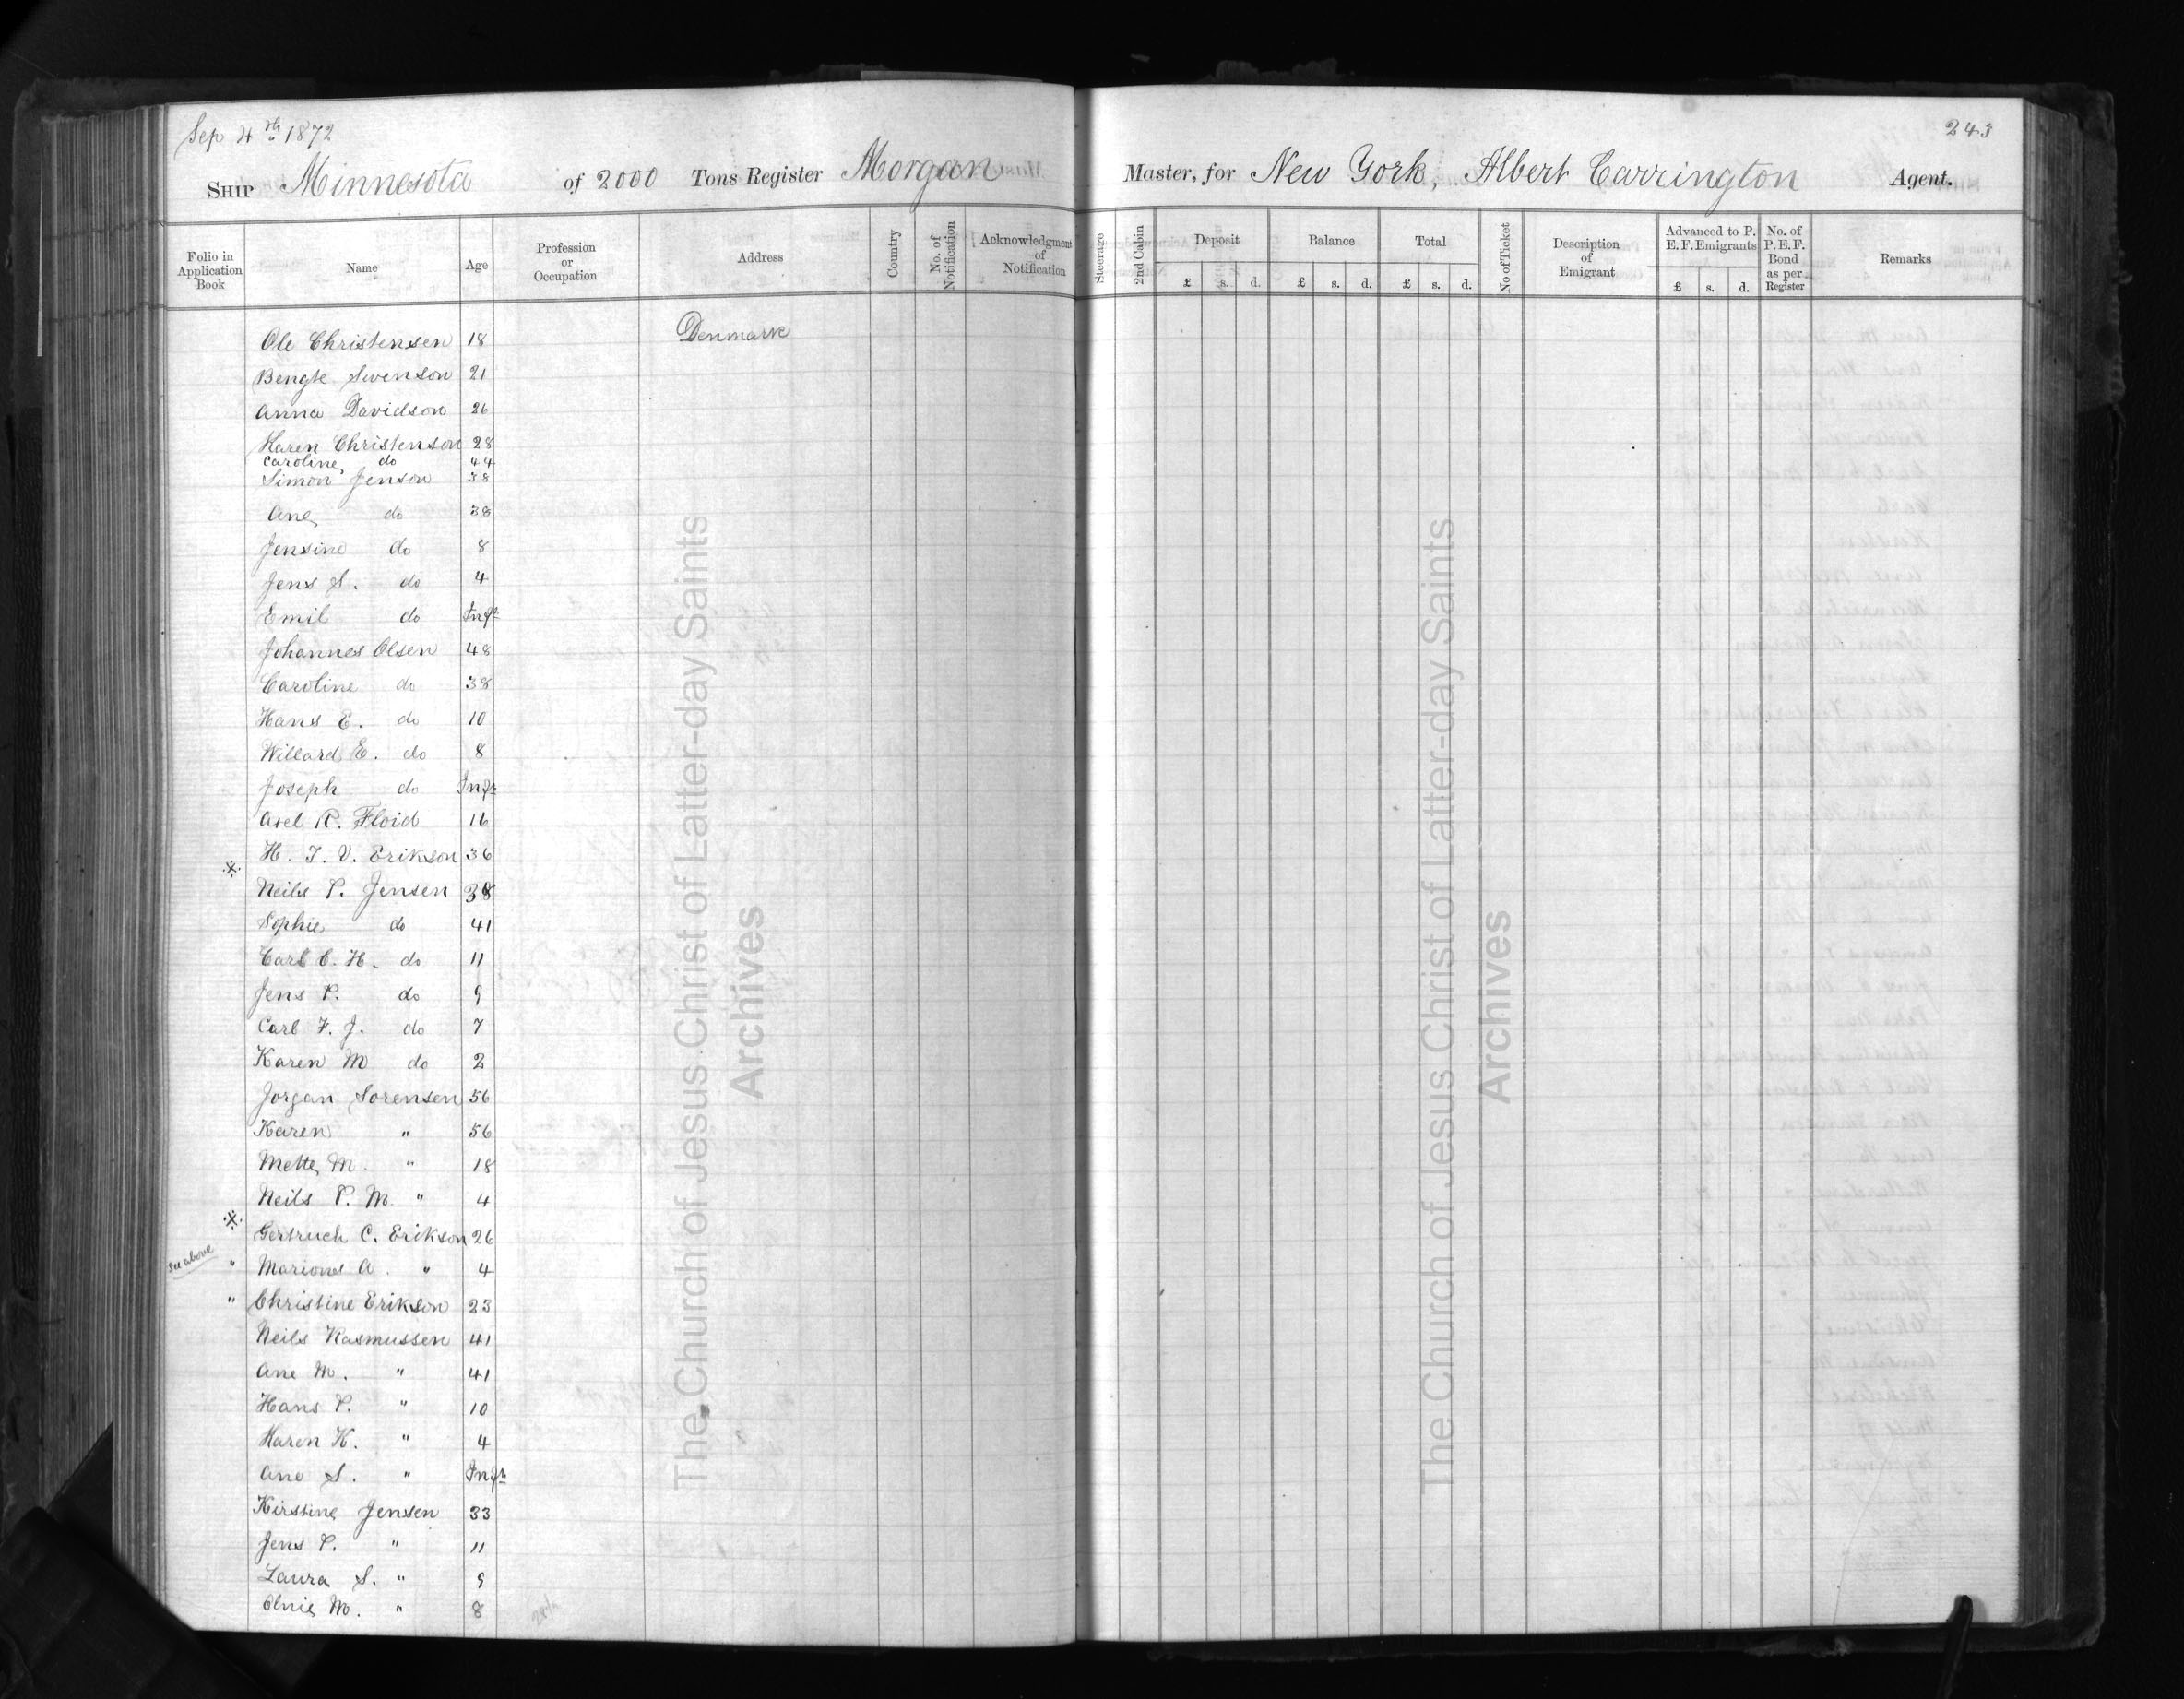 Sep 4th 1872
243
SHIP Minnesota of 2000 Tons Register Morgan Master, for New York, Albert Carrington Agent.
Folio in Application Book Name Age Profession or Occupation Address Country No. of Notification Acknowledgment of Notification Steerage 2nd Cabin Deposit Balance Total No of Ticket Description of Emigrant Advanced to P. E. F. Emigrants No. of P. E. F. Bond as per Register Remarks
£ s. d. £ s. d. £ s. d. £ s. d.
Ole Christensen 18 Denmark
Bengt Swenson 21
Anna Davidson 26
Karen Christenson 28
Caroline do 44
Simon Jenson 38
Ane do 38
Jensine do 8
Jens S. do 4
Emil do Inft
Johannes Olsen 48
Caroline do 38
Hans E. do 10
Willard E. do 8
Joseph do Inft
Axel R. Floid 16
H. I. V. Erikson 36
※ Neils P. Jensen 38
Sophie do 41
Carl C. H. do 11
Jens P. do 9
Carl F. J. do 7
Karen M do 2
Jorgan Sorensen 56
Karen " 56
Mette M. " 18
Neils P. M. " 4
※ Gertruch C. Erikson 26
see above " Marione A. " 4
" Christine Erikson 23
Neils Rasmussen 41
Ane M. " 41
Hans P. " 10
Karen K. " 4
Ane S. " Inft
Kirstine Jensen 33
Jens P. " 11
Laura S. " 9
M. " 8
The Church of Jesus Christ of Latter-day Saints
Archives
The Church of Jesus Christ of Latter-day Saints
Archives